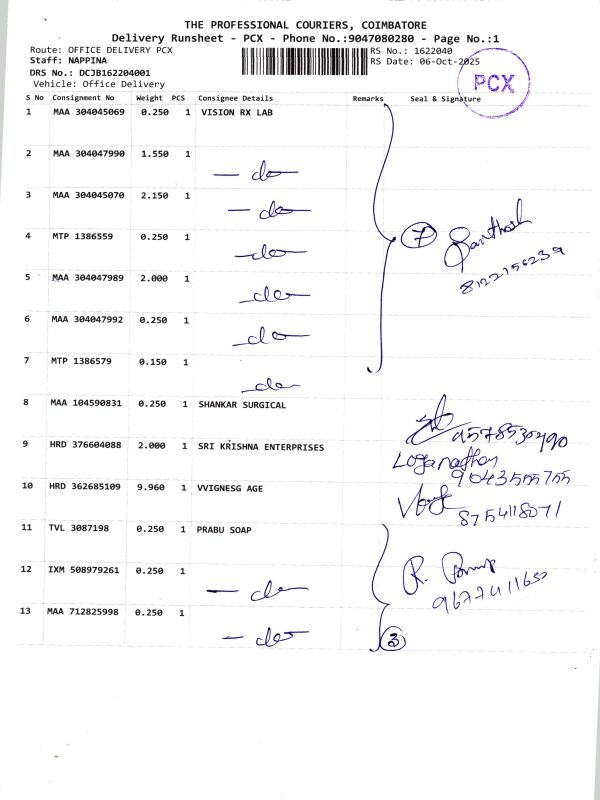 THE PROFESSIONAL COURIERS, COIMBATORE
Delivery Runsheet - PCX - Phone No.:9047080280 - Page No.:1
Route: OFFICE DELIVERY PCX RS No.: 1622040
Staff: NAPPINA RS Date: 06-Oct-2025
DRS No.: DCJB162204001
Vehicle: Office Delivery
PCX
S No Consignment No Weight PCS Consignee Details Remarks Seal & Signature
1 MAA 304045069 0.250 1 VISION RX LAB
2 MAA 304047990 1.550 1 — do —
3 MAA 304045070 2.150 1 — do —
4 MTP 1386559 0.250 1 — do — 7 Santhosh
8122156239
5 MAA 304047989 2.000 1 — do —
6 MAA 304047992 0.250 1 — do —
7 MTP 1386579 0.150 1 — do —
8 MAA 104590831 0.250 1 SHANKAR SURGICAL
9578530490
9 HRD 376604088 2.000 1 SRI KRISHNA ENTERPRISES Loganathan
9043555755
10 HRD 362685109 9.960 1 VVIGNESG AGE
8754118071
11 TVL 3087198 0.250 1 PRABU SOAP
12 IXM 508979261 0.250 1 — do — R.
13 MAA 712825998 0.250 1 — do — 3